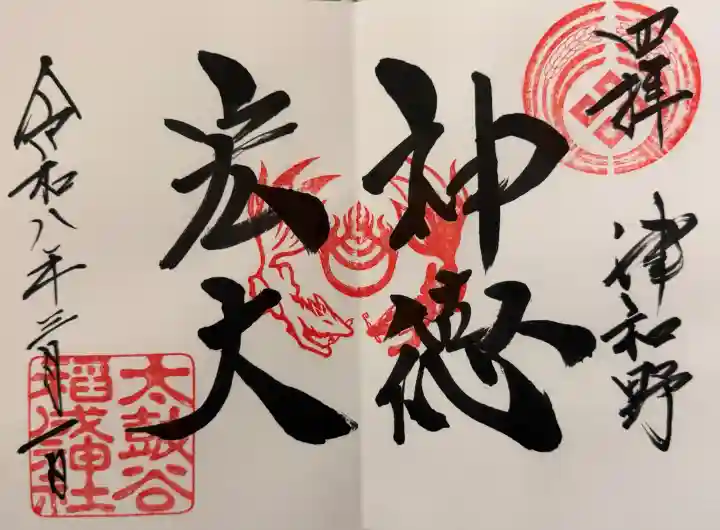 四拝
津和野
神徳
宏大
太鼓谷
稲成神社
令和八年三月一日